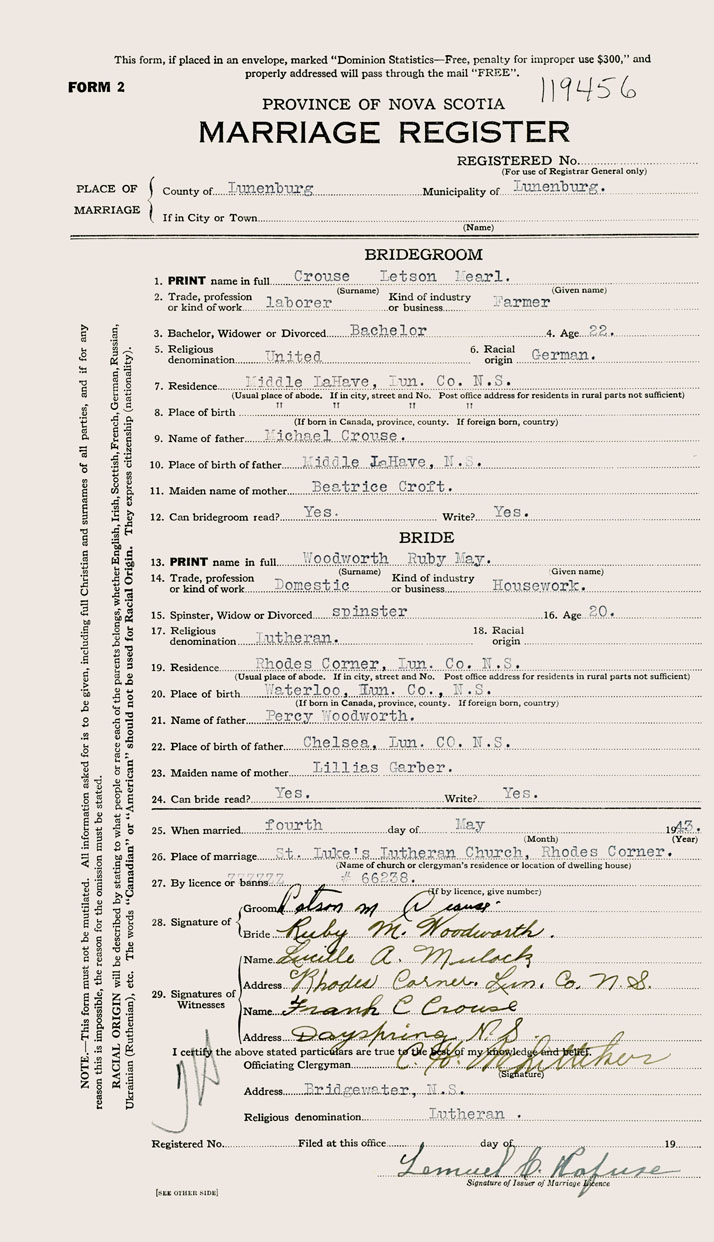 This form, if placed in an envelope, marked "Dominion Statistics—Free, penalty for improper use $300," and
properly addressed will pass through the mail "FREE".
FORM 2
119456
PROVINCE OF NOVA SCOTIA
MARRIAGE REGISTER
REGISTERED No.
(For use of Registrar General only)
PLACE OF MARRIAGE
County of Lunenburg Municipality of Lunenburg.
If in City or Town
(Name)
BRIDEGROOM
1. PRINT name in full Crouse Letson Mearl.
(Surname) (Given name)
2. Trade, profession or kind of work laborer Kind of industry or business Farmer
3. Bachelor, Widower or Divorced Bachelor 4. Age 22.
5. Religious denomination United 6. Racial origin German.
7. Residence Middle LaHave, Lun. Co. N.S.
(Usual place of abode. If in city, street and No. Post office address for residents in rural parts not sufficient)
8. Place of birth " " " "
(If born in Canada, province, county. If foreign born, country)
9. Name of father Michael Crouse.
10. Place of birth of father Middle LaHave, N.S.
11. Maiden name of mother Beatrice Croft.
12. Can bridegroom read? Yes. Write? Yes.
BRIDE
13. PRINT name in full Woodworth Ruby May.
(Surname) (Given name)
14. Trade, profession or kind of work Domestic Kind of industry or business Housework.
15. Spinster, Widow or Divorced spinster 16. Age 20.
17. Religious denomination Lutheran. 18. Racial origin
19. Residence Rhodes Corner, Lun. Co. N.S.
(Usual place of abode. If in city, street and No. Post office address for residents in rural parts not sufficient)
20. Place of birth Waterloo, Lun. Co., N.S.
(If born in Canada, province, county. If foreign born, country)
21. Name of father Percy Woodworth.
22. Place of birth of father Chelsea, Lun. CO. N.S.
23. Maiden name of mother Lillias Garber.
24. Can bride read? Yes. Write? Yes.
25. When married fourth day of May 1943.
(Month) (Year)
26. Place of marriage St. Luke's Lutheran Church, Rhodes Corner.
(Name of church or clergyman's residence or location of dwelling house)
27. By licence or banns # 66238.
(If by licence, give number)
28. Signature of
Groom Letson M Crouse
Bride Ruby M. Woodworth.
29. Signatures of Witnesses
Name Lucille A. Mulock
Address Rhodes Corner, Lun. Co. N.S.
Name Frank C Crouse
Address Dayspring N.S.
I certify the above stated particulars are true to the best of my knowledge and belief.
Officiating Clergyman
(Signature)
Address Bridgewater, N.S.
Religious denomination Lutheran .
Registered No. Filed at this office day of 19
Lemuel C. Hafuse
Signature of Issuer of Marriage Licence
[SEE OTHER SIDE]
NOTE.—This form must not be mutilated. All information asked for is to be given, including full Christian and surnames of all parties, and if for any
reason this is impossible, the reason for the omission must be stated.
RACIAL ORIGIN will be described by stating to what people or race each of the parents belongs, whether English, Irish, Scottish, French, German, Russian,
Ukrainian (Ruthenian), etc. The words "Canadian" or "American" should not be used for Racial Origin. They express citizenship (nationality).